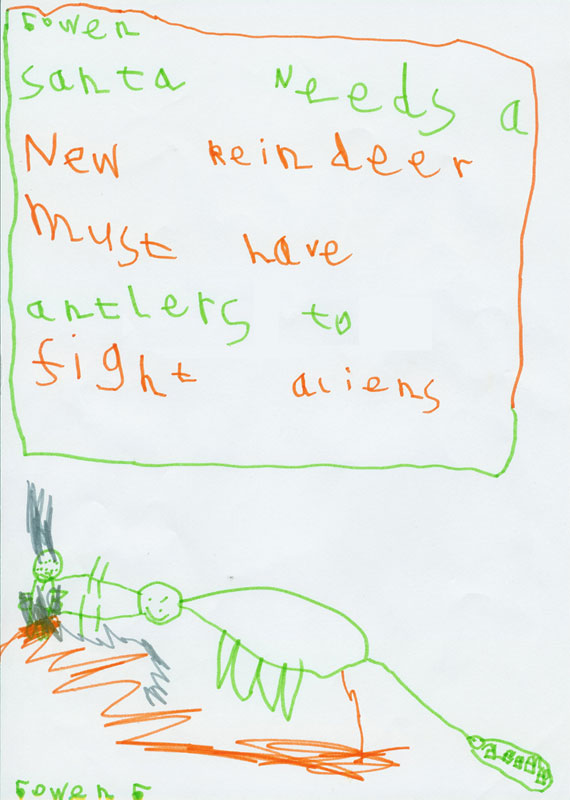 5owen
santa Needs a
New Reindeer
must have
antlers to
fight aliens
5owen 5